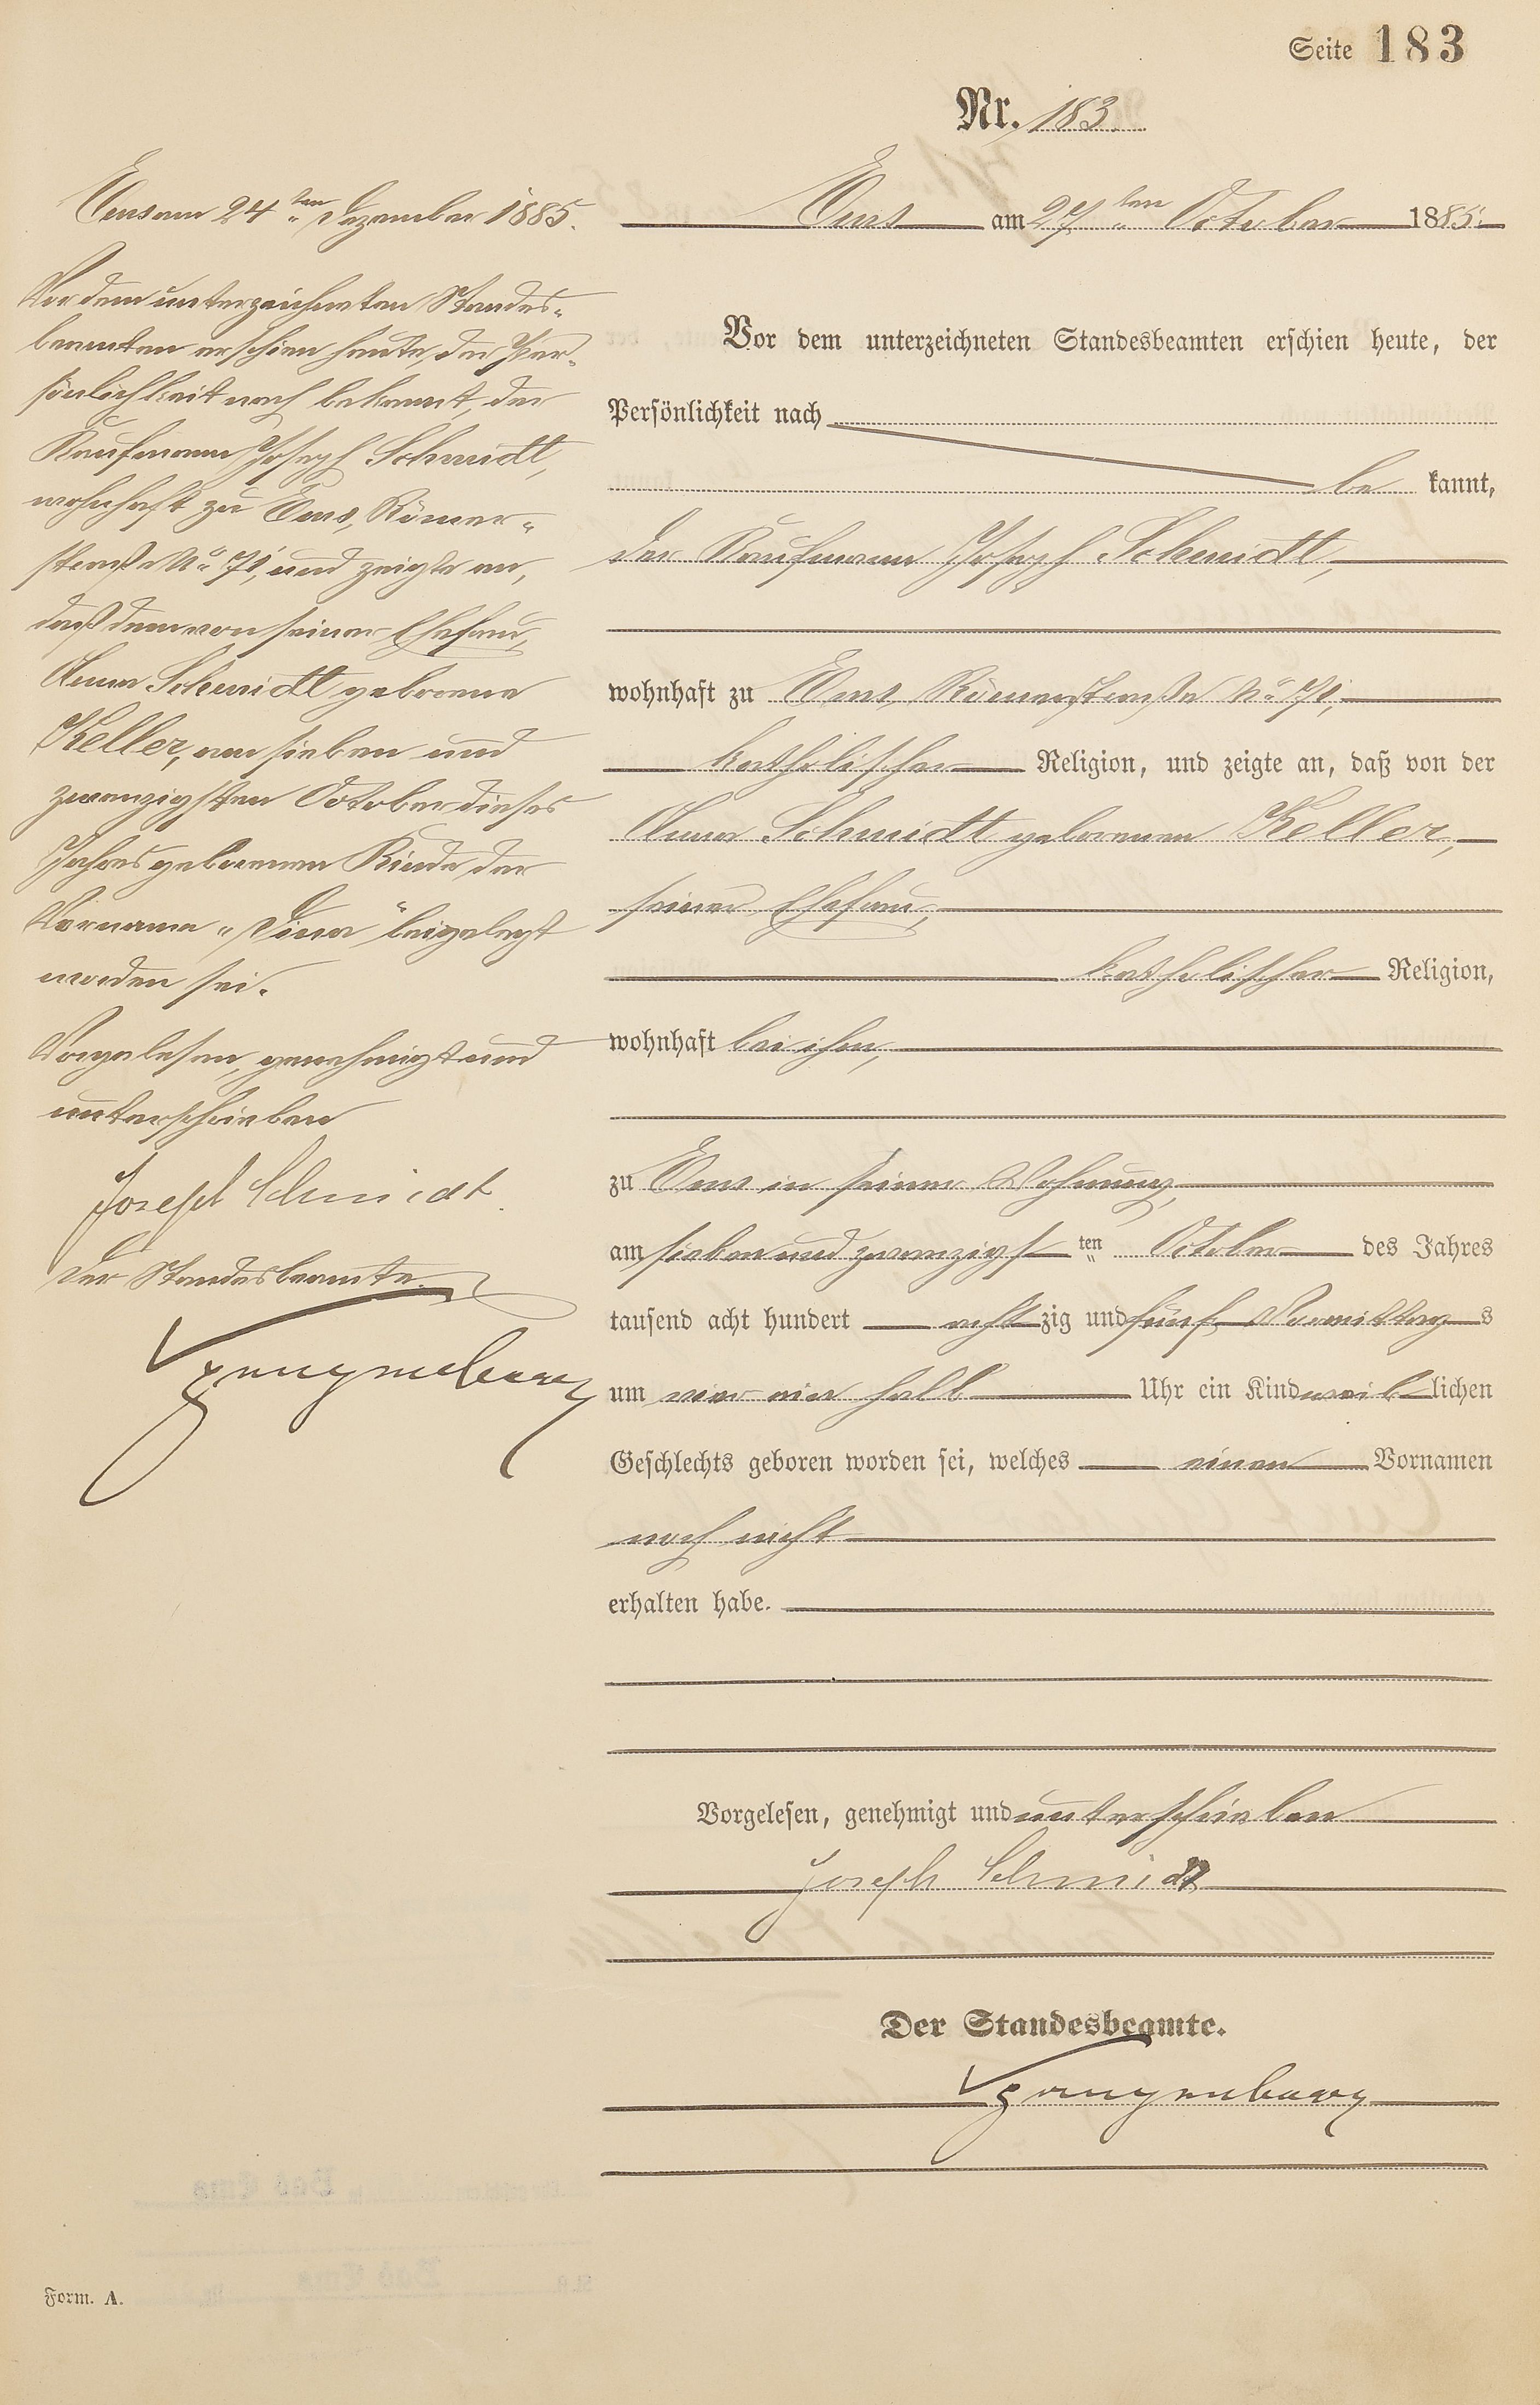 Seite 183
Nr. 183.
Ems am 24ten Dezember 1885.
Vor dem unterzeichneten Standes-
beamten erschien heute, der Per-
sönlichkeit nach bekannt, der
Kaufmann Joseph Schmidt,
wohnhaft zu Ems, Römer-
straße No 71, und zeigte an,
daß dem von seiner Ehefrau,
Anna Schmidt geborene
Keller, am sieben und
zwanzigsten October dieses
Jahres geborenen Kinde der
Vorname „Dina“ beigelegt
worden sei.
Vorgelesen, genehmigt und
unterschrieben
Joseph Schmidt.
Der Standesbeamte.
Ems am 27ten October 1885.
Vor dem unterzeichneten Standesbeamten erschien heute, der
Persönlichkeit nach
be kannt,
der Kaufmann Joseph Schmidt,
wohnhaft zu Ems, Römerstraße No 71,
katholischer Religion, und zeigte an, daß von der
Anna Schmidt geborenen Keller,
seiner Ehefrau,
katholischer Religion,
wohnhaft bei ihm,
zu Ems in seiner Wohnung,
am sieben und zwanzigsten October des Jahres
tausend acht hundert achtzig und fünf Vormittags
um vier ein halb Uhr ein Kind weiblichen
Geschlechts geboren worden sei, welches einen Vornamen
noch nicht
erhalten habe.
Vorgelesen, genehmigt und unterschrieben
Joseph Schmidt
Der Standesbeamte.
Form. A.